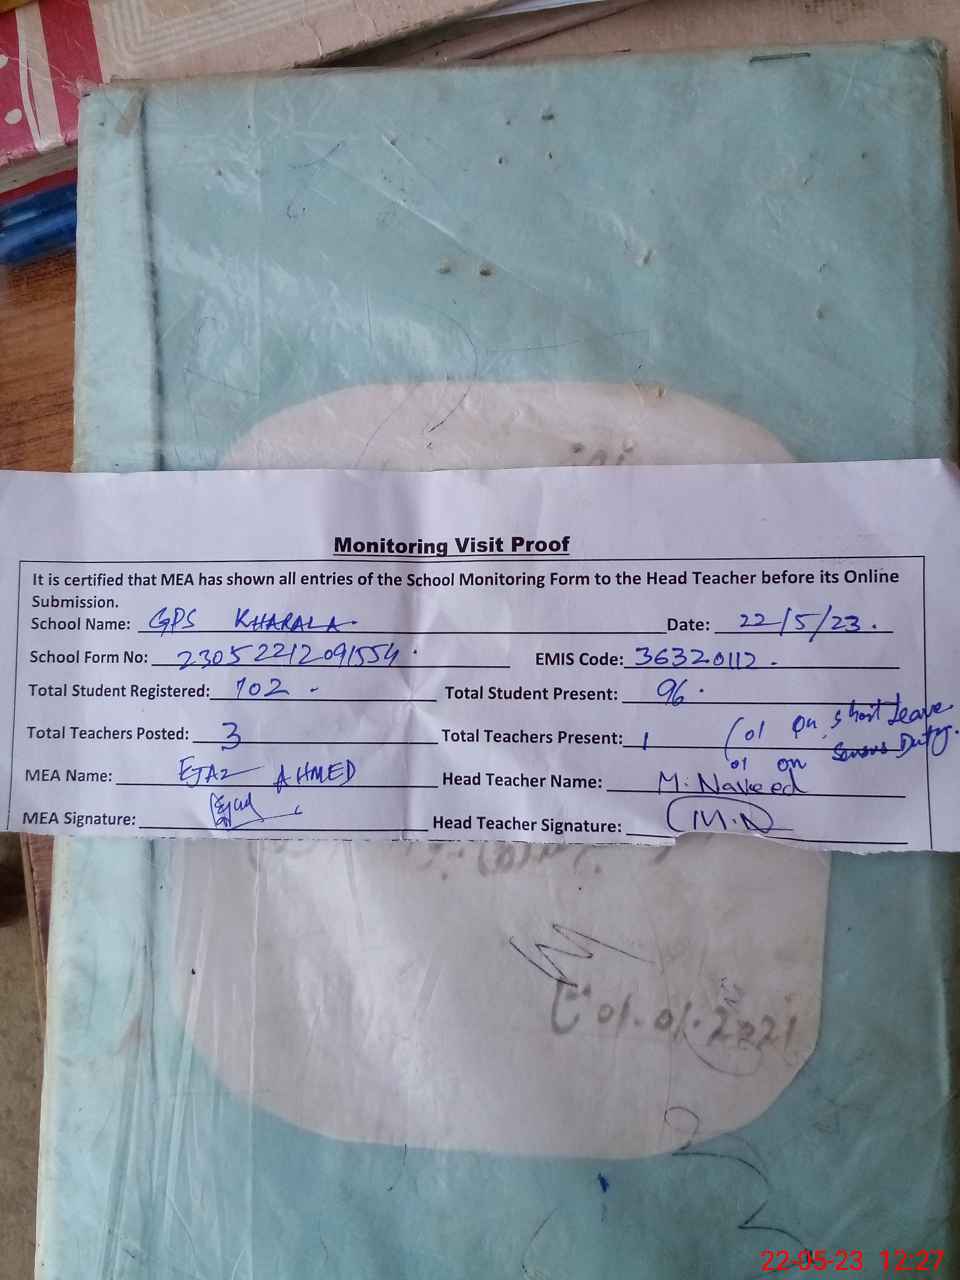 Monitoring Visit Proof
It is certified that MEA has shown all entries of the School Monitoring Form to the Head Teacher before its Online
Submission.
School Name: GPS KHARALA. Date: 22/5/23.
School Form No: 23052212091554. EMIS Code: 36320112.
Total Student Registered: 102 Total Student Present: 96.
Total Teachers Posted: 3 Total Teachers Present: 1 (01 on short Leave
01 on Duty.
MEA Name: EJAZ AHMED Head Teacher Name: M. Naveed
MEA Signature: Head Teacher Signature: M.N
01.01.2021
22-05-23 12:27